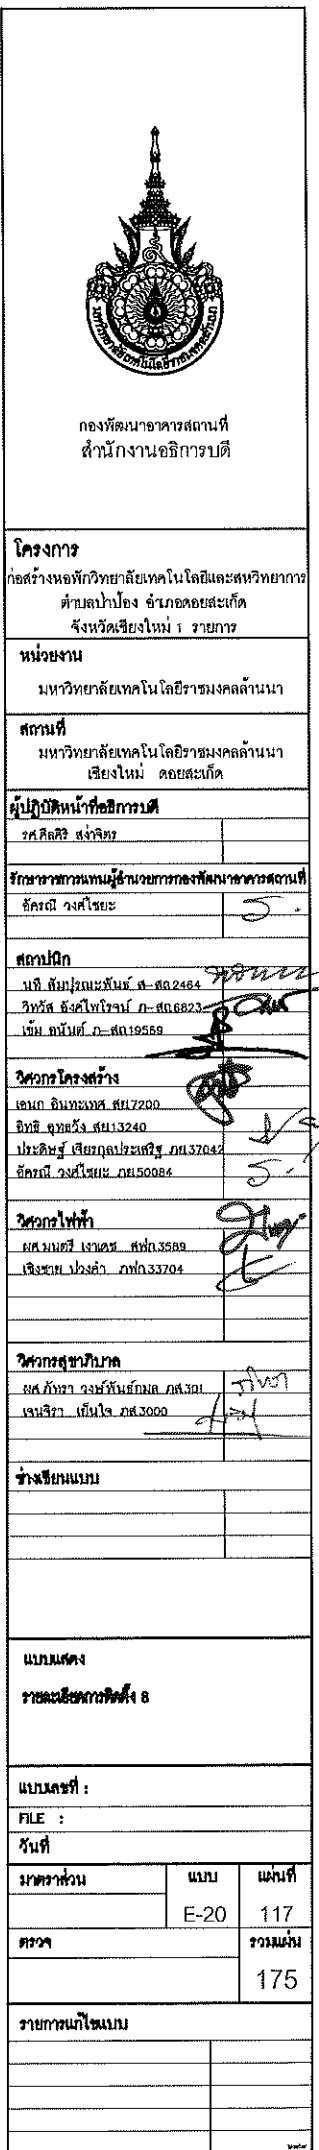 มหาวิทยาลัยเทคโนโลยีราชมงคลล้านนา
กองพัฒนาอาคารสถานที่
สำนักงานอธิการบดี
โครงการ
ก่อสร้างหอพักวิทยาลัยเทคโนโลยีและสหวิทยาการ
ตำบลป่าป้อง อำเภอดอยสะเก็ด
จังหวัดเชียงใหม่ 1 รายการ
หน่วยงาน
มหาวิทยาลัยเทคโนโลยีราชมงคลล้านนา
สถานที่
มหาวิทยาลัยเทคโนโลยีราชมงคลล้านนา
เชียงใหม่ ดอยสะเก็ด
ผู้ปฏิบัติหน้าที่อธิการบดี
รศ.ศีลศิริ สง่าจิตร
รักษาราชการแทนผู้อำนวยการกองพัฒนาอาคารสถานที่
อัครณี วงศ์ไชยะ
สถาปนิก
นที สัมปุรณะพันธ์ ส-สถ2464
วิทวัส อังค์ไพโรจน์ ภ-สถ6823
เข้ม อนันต์ ภ-สถ19569
วิศวกรโครงสร้าง
เอนก อินทะเทศ สย7200
อิทธิ อุทธวัง สย13240
ประดิษฐ์ เจียรกุลประเสริฐ ภย37042
อัครณี วงศ์ไชยะ ภย50084
วิศวกรไฟฟ้า
ผศ.มนตรี เงาเดช สฟก.3589
เชิงชาย ปวงคำ ภฟก.33704
วิศวกรสุขาภิบาล
ผศ.ภัทรา วงษ์พันธ์กมล ภส.301
เจนจิรา เย็นใจ ภส.3000
ช่างเขียนแบบ
แบบแสดง
รายละเอียดการติดตั้ง 8
แบบเลขที่ :
FILE :
วันที่
มาตราส่วน แบบ แผ่นที่
E-20 117
ตรวจ รวมแผ่น
175
รายการแก้ไขแบบ